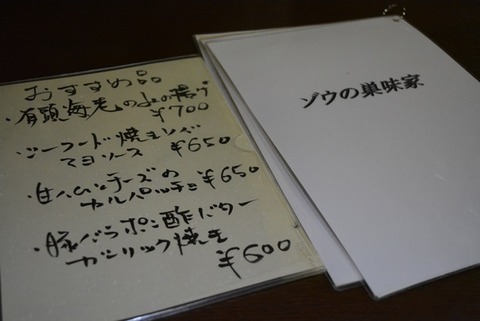 おすすめ品
・有頭海老のよの揚げ
¥700
・シーフード焼きソバ
マヨソース ¥650
・生ハムとチーズの
カルパッチョ ¥650
・豚バラポン酢バター
ガーリック焼き
¥600
ゾウの巣味家